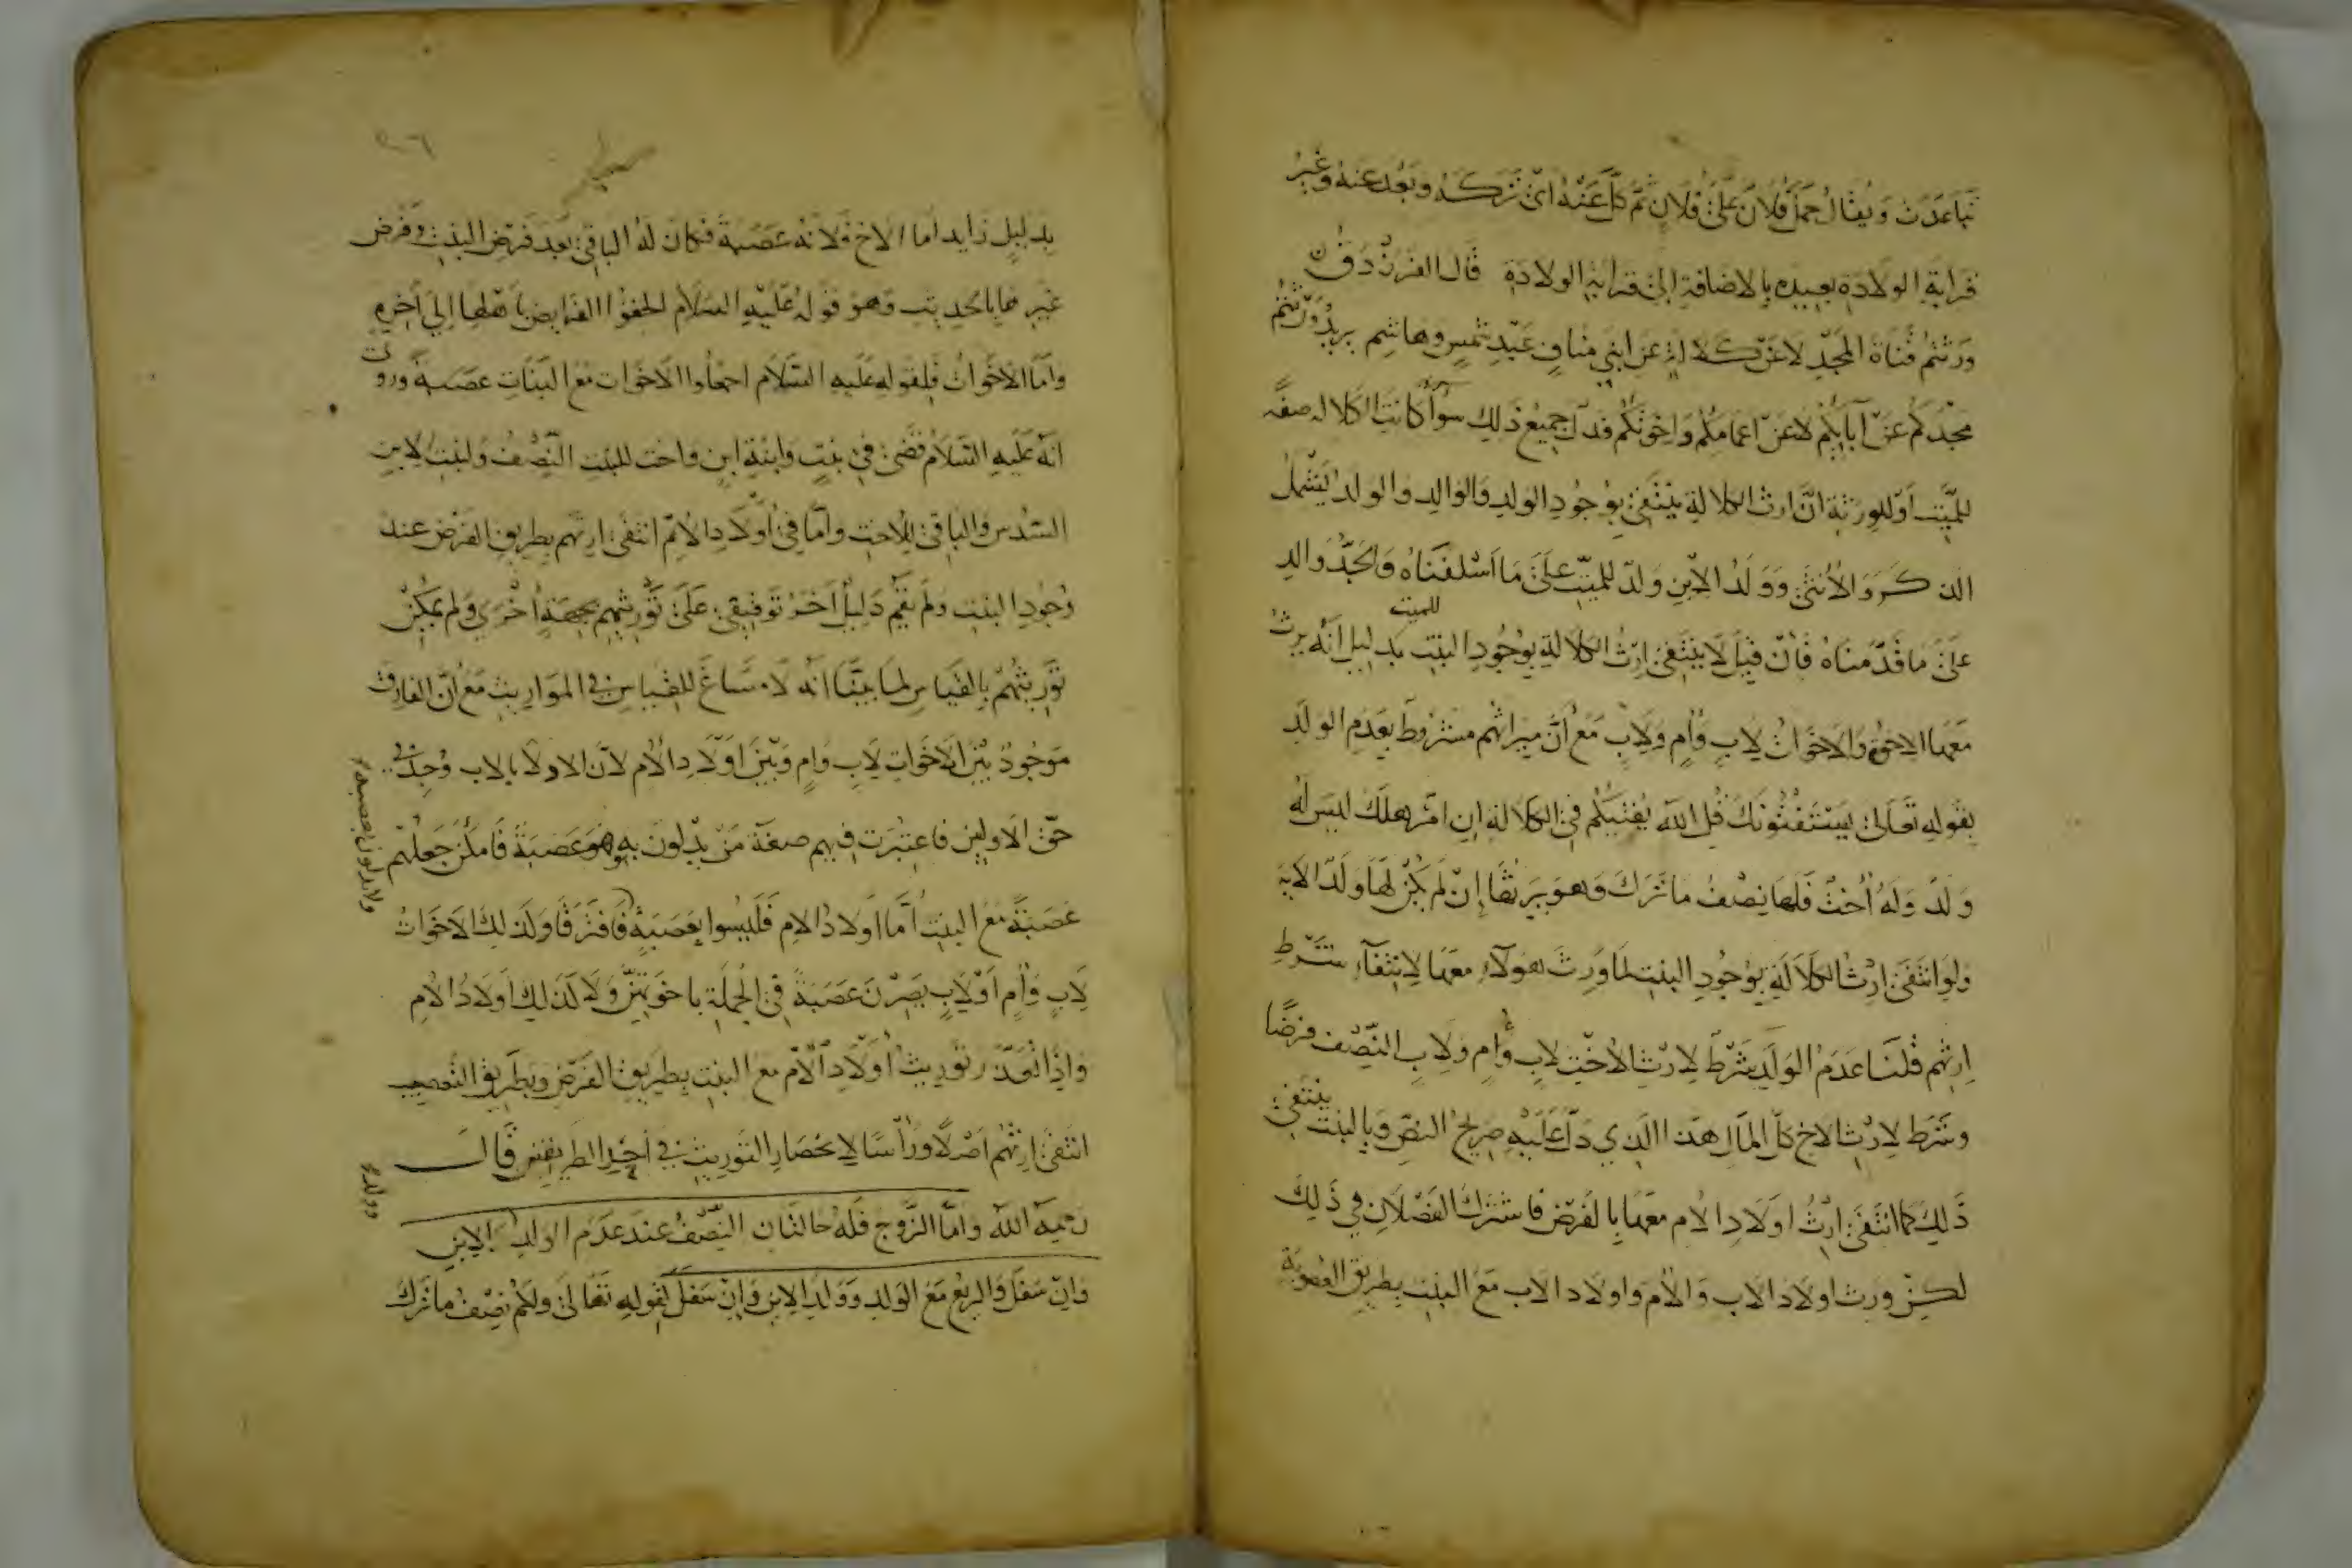 تباعدت ويقال حمل فلان على فلان ثم كلّ عنه اى تركه وبعد عنه وغير
قرابة الولادة بعيده بالاضافة الى قرابة الولادة قال الفرزدق
ورثتم قناة المجد لا عن كلالة عن ابني مناف عبد شمس وهاشم يريد ورثتم
مجدكم عن آبايكم لا عن اعمامكم واخوتكم فدل جميع ذلك سوآ كانت الكلاله صفة
للميت او للورثة ان ارث الكلالة ينتفى بوجود الولد والوالد والولد يشمل
الذكر والانثى وولد الابن ولد للميت على ما اسلفناه والجد والد
على ما قدمناه فان قيل لا ينتفى ارث الكلالة بوجود البنت للميت بدليل انه يرث
معها الاخوة والاخوات لاب وام ولاب مع ان ميراثهم مشروط بعدم الولد
بقوله تعالى يستفتونك قل الله يفتيكم في الكلالة ان امرؤ هلك ليس له
ولد وله أخت فلها نصف ما ترك وهو يرثها إن لم يكن لها ولد الاية
ولو انتفى ارث الكلالة بوجود البنت لما ورث هولاء معها لانتفآء شرط
ارثهم قلنا عدم الولد شرط لارث الاخت لاب وأم ولاب النصف فرضا
وشرط لارث الاخ كل المال هذا الذي دل عليه صريح النص وبالبنت ينتفى
ذلك كما انتفى ارث اولاد الام معها بالفرض فاشترك الفصلان في ذلك
لكن ورث اولاد الاب والام واولاد الاب مع البنت بطريق العصوبة
بدليل زايد اما الاخ فلانه عصبة فكان له الباقي بعد فرض البنت وفرض
غيرها بالحديث وهو قوله عليه السلام الحقوا الفرايض باهلها الى آخره
واما الاخوات فلقوله عليه السلام اجعلوا الاخوات مع البنات عصبة وروت
انه عليه السلام قضى في بنت وابنة ابن واخت للبنت النصف ولبنت الابن
السدس والباقي للاخت واما في أولاد الام انتفى ارثهم بطريق الفرض عند
وجود البنت ولم يقم دليل آخر توقيفي على توريثهم بجهة أخرى ولم يمكن
توريثهم بالقياس لما بينا انه لا مساغ للقياس في المواريث مع ان الفارق
موجود بين الاخوات لاب وام وبين اولاد الام لان الادلاء بالاب وجد في
حق الاولين فاعتبرت فيهم صفة من يدلون به وهو عصبة فامكن جعلهم
عصبة مع البنت أما اولاد الام فليسوا بعصبة فافترقا ولذلك الاخوات
ولا يدلون بعصبه
لاب وأم او لاب يصرن عصبة في الجملة باخوتهن ولا كذلك اولاد الام
واذا تعذر توريث أولاد الأم مع البنت بطريق الفرض وبطريق التعصيب
انتفى ارثهم اصلا ورأسا لانحصار التوريث في احد الطريقين قال
رحمه الله واما الزوج فله حالتان النصف عند عدم الولد الابن
وولد
وان سفل والربع مع الولد وولد الابن وان سفل لقوله تعالى ولكم نصف ما ترك